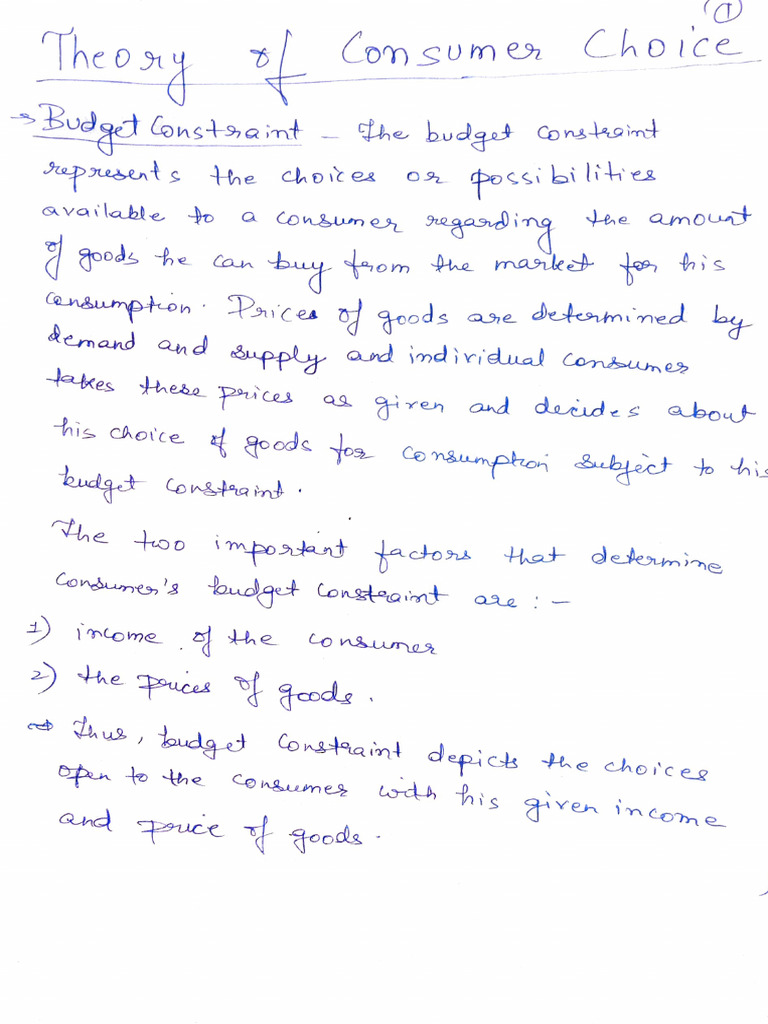 ①
Theory of Consumer Choice
→ Budget Constraint – The budget constraint
represents the choices or possibilities
available to a consumer regarding the amount
of goods he can buy from the market for his
consumption. Prices of goods are determined by
demand and supply and individual consumer
takes these prices as given and decides about
his choice of goods for consumption subject to his
budget constraint.
The two important factors that determine
consumer's budget constraint are :–
1) income of the consumer
2) the prices of goods.
→ Thus, budget constraint depicts the choices
open to the consumer with his given income
and price of goods.